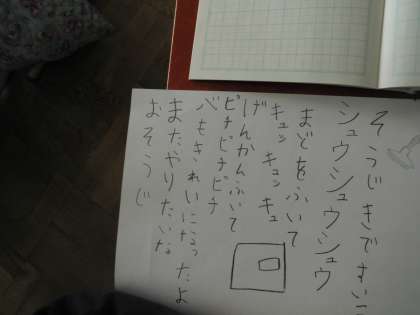 そうじきですいて
シュウシュウシュウ
まどをふいて
キュッキュッキュ
げんかんふいて
ピチピチピチ
べもきれいになったよ
またやりたいな
おそうじ